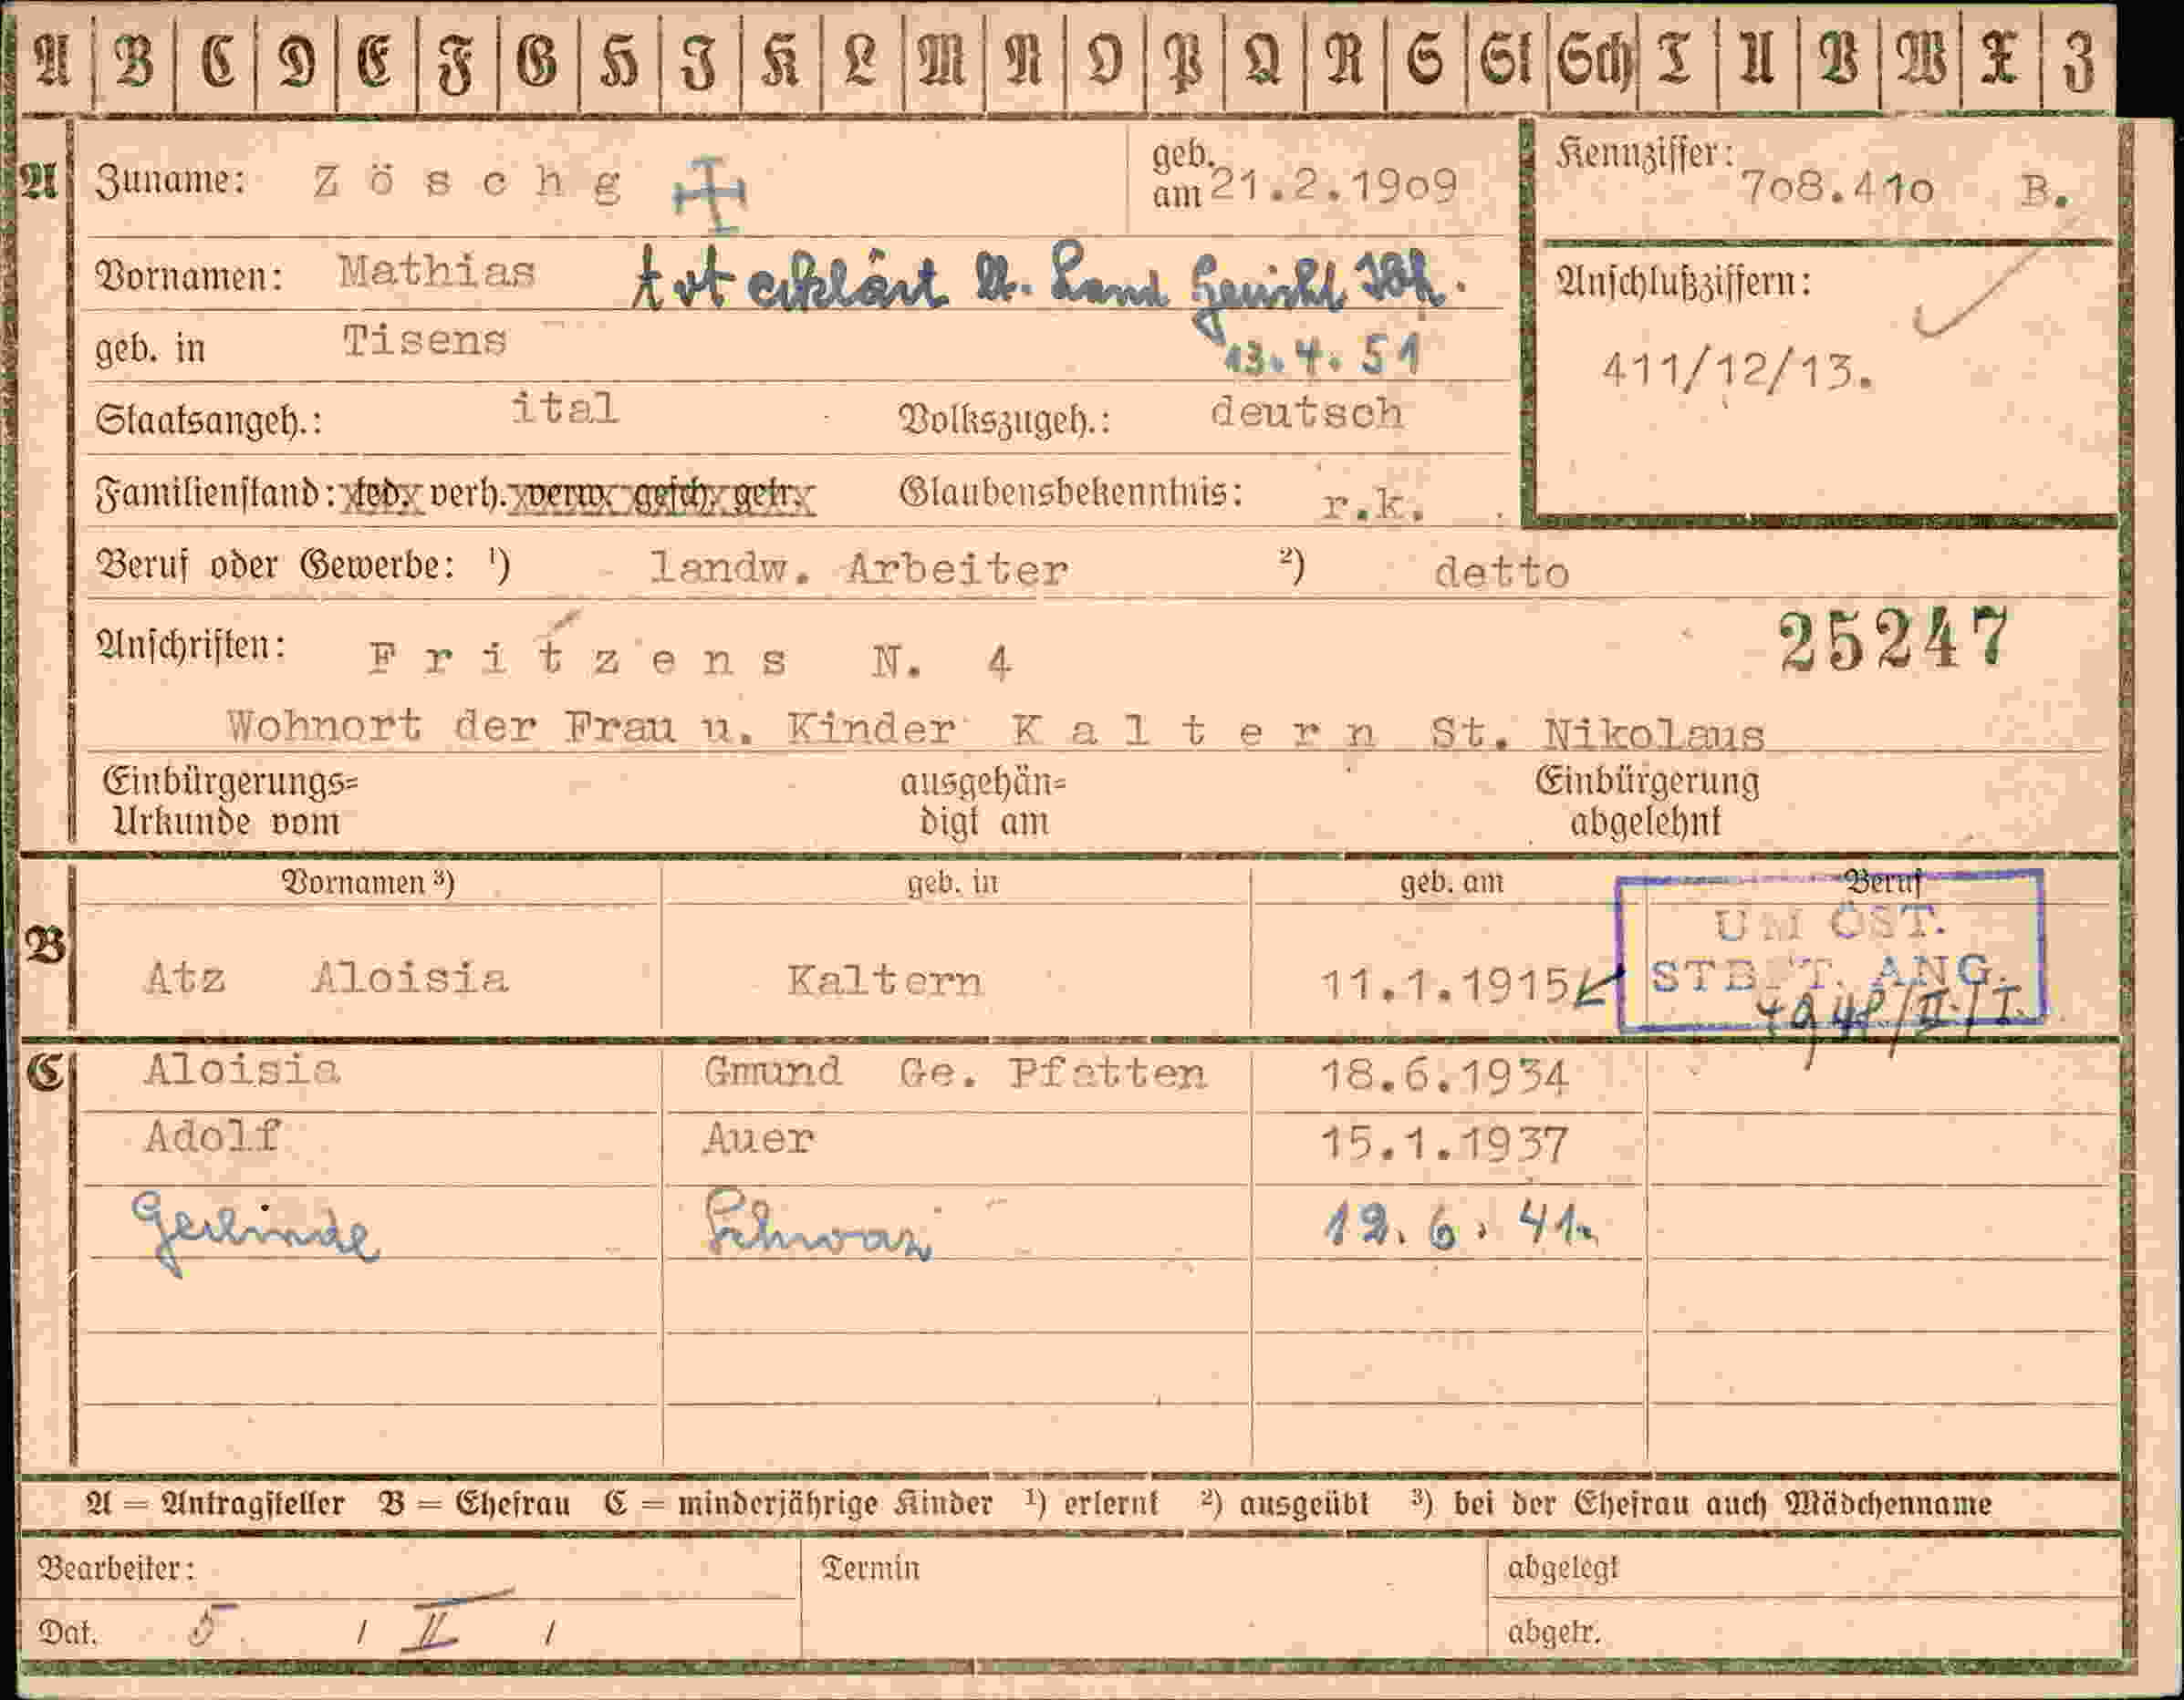 A B C D E F G H I K L M N O P Q R S St Sch T U V W X Z
A Zuname: Zöschg geb. am 21.2.1909 Kennziffer: 708.410 B.
Vornamen: Mathias tot erklärt Land Gericht
13.4.51
Anschlußziffern:
geb. in Tisens
411/12/13.
Staatsangeh.: ital Volkszugeh.: deutsch
Familienstand: led. verh. verw. gesch. getr. Glaubensbekenntnis: r.k.
Beruf oder Gewerbe: 1) landw. Arbeiter 2) detto
Anschriften: Fritzens N. 4 25247
Wohnort der Frau u. Kinder Kaltern St. Nikolaus
Einbürgerungs=
Urkunde vom
ausgehän=
digt am
Einbürgerung
abgelehnt
Vornamen 3) geb. in geb. am Beruf
UM ÖST.
STB.T. ANG.
B Atz Aloisia Kaltern 11.1.1915
C Aloisia Gmund Ge. Pfatten 18.6.1934
Adolf Auer 15.1.1937
Gerlinde Schwaz 12.6.41.
A = Antragsteller B = Ehefrau C = minderjährige Kinder 1) erlernt 2) ausgeübt 3) bei der Ehefrau auch Mädchenname
Bearbeiter: Termin abgelegt
Dat. 5. / II / abgetr.